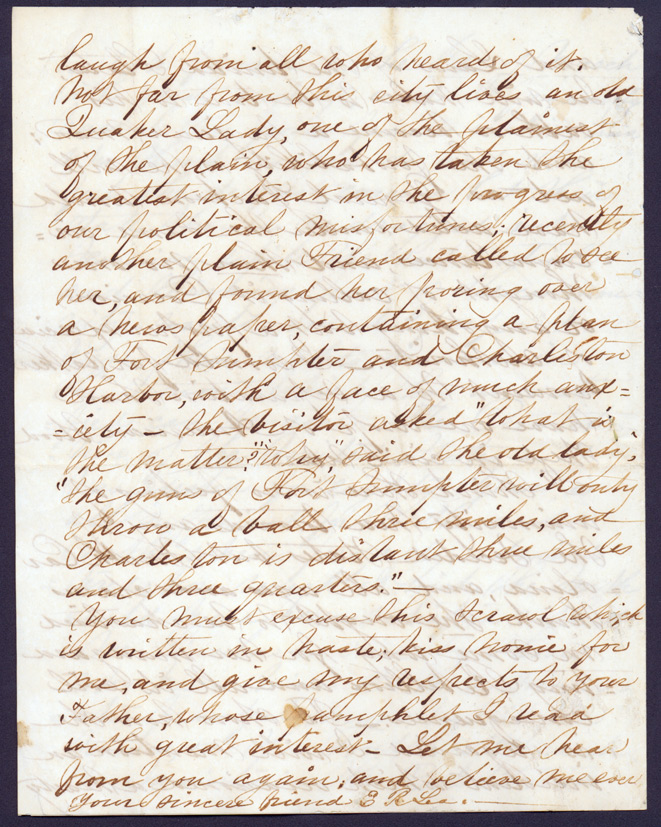 laugh from all who heard of it.
Not far from this city lives an old
Quaker Lady, one of the plainest
of the plain, who has taken the
greatest interest in the progress of
our political misfortunes; recently
another plain Friend called to see
her, and found her poring over
a news paper, containing a plan
of Fort Sumpter and Charleston
Harbor, with a face of much anx=
=iety - the visitor asked "what is
the matter?" "why," said the old lady,
"the guns of Fort Sumpter will only
throw a ball three miles, and
Charleston is distant three miles
and three quarters." —
You must excuse this scrawl which
is written in haste; kiss Nonie for
me, and give my respects to your
Father, whose pamphlet I read
with great interest - Let me hear
from you again, and believe me ever
Your sincere friend E R Lea. —